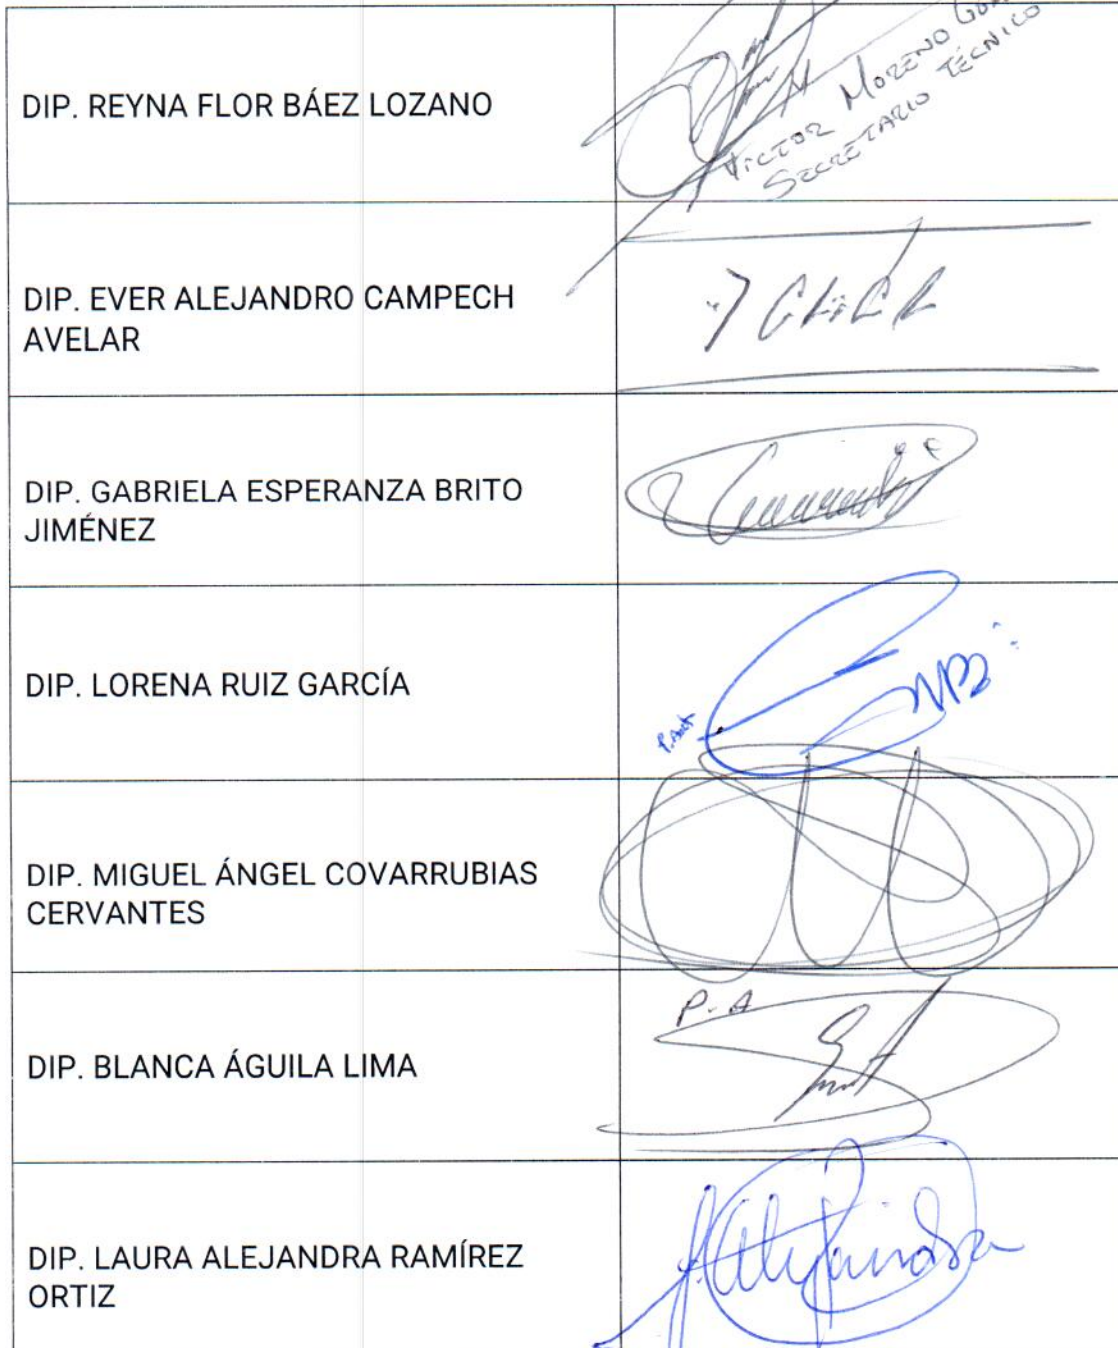 DIP. REYNA FLOR BÁEZ LOZANO
VICTOR MORENO
SECRETARIO TÉCNICO
DIP. EVER ALEJANDRO CAMPECH
AVELAR
DIP. GABRIELA ESPERANZA BRITO
JIMÉNEZ
DIP. LORENA RUIZ GARCÍA
DIP. MIGUEL ÁNGEL COVARRUBIAS
CERVANTES
P. A
DIP. BLANCA ÁGUILA LIMA
DIP. LAURA ALEJANDRA RAMÍREZ
ORTIZ